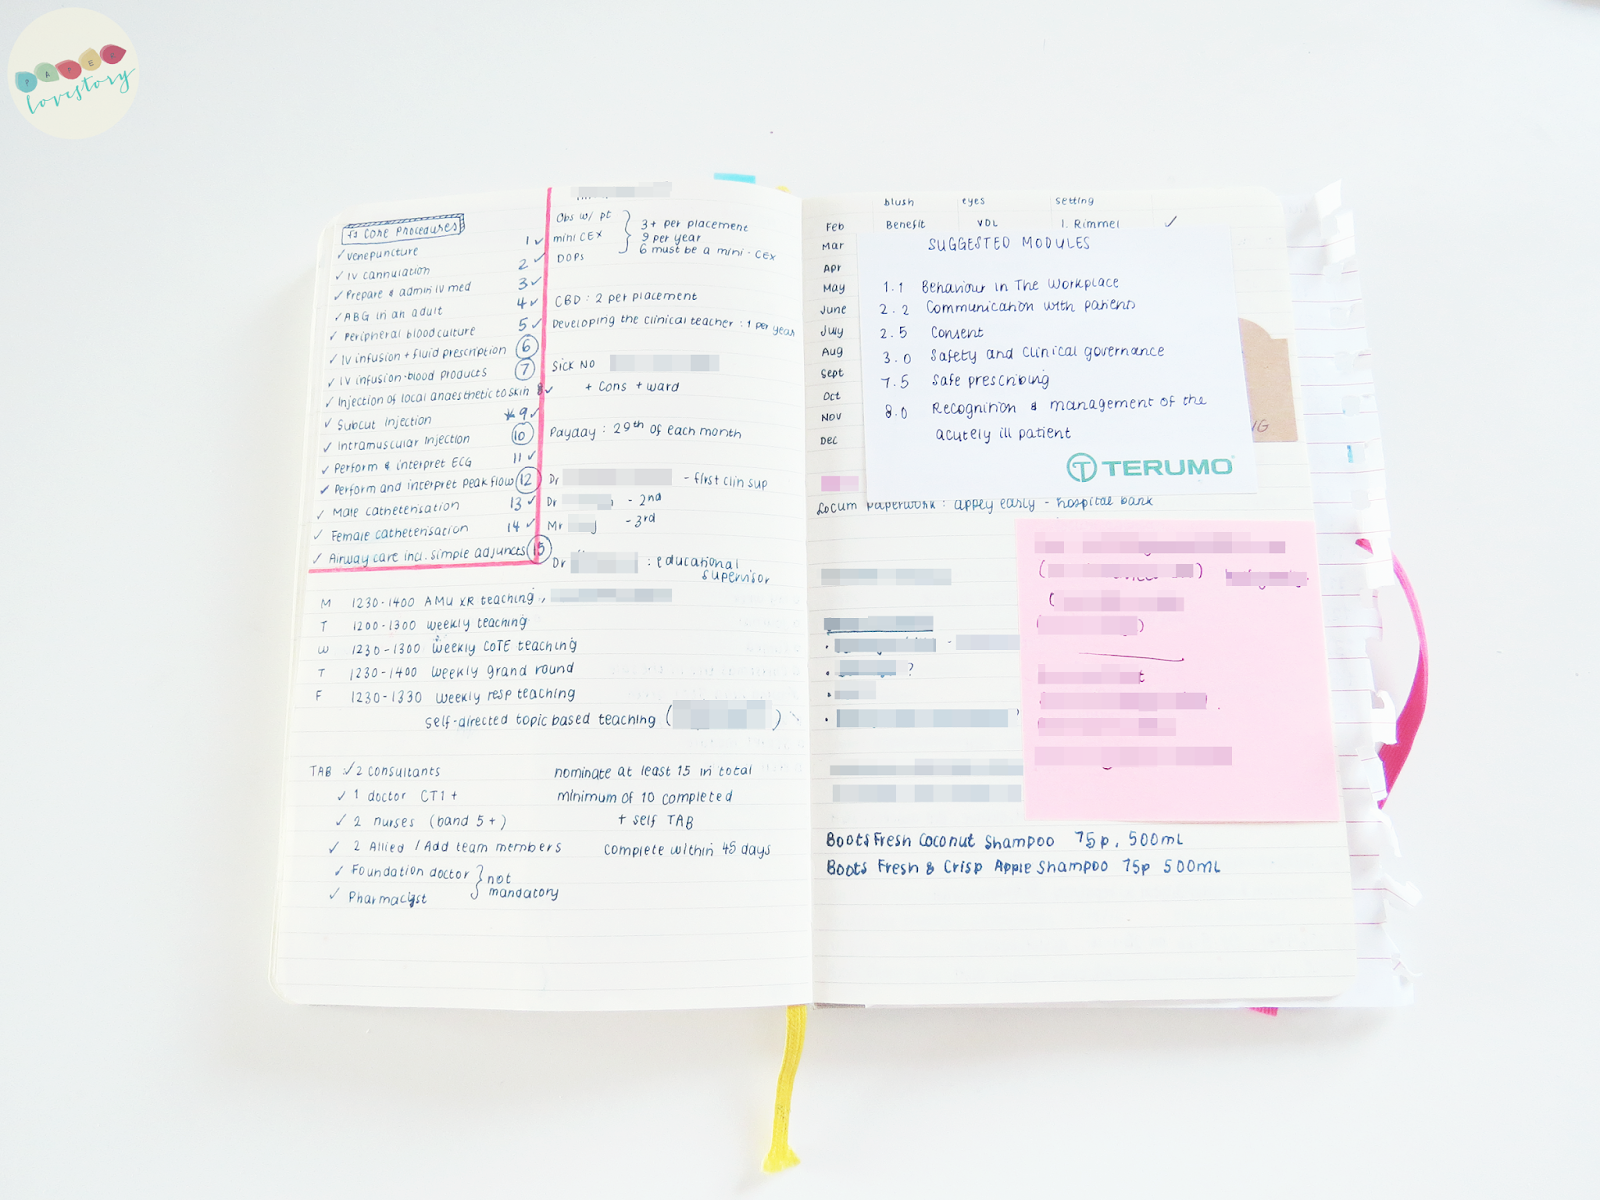 PAPER
lovestory
F1 Core Procedures
✓ Venepuncture 1 ✓
✓ IV cannulation 2 ✓
✓ Prepare & admin IV med 3 ✓
✓ ABG in an adult 4 ✓
✓ Peripheral blood culture 5 ✓
✓ IV infusion + fluid prescription 6
✓ IV infusion - blood products 7
✓ Injection of local anaesthetic to skin 8 ✓
✓ Subcut injection * 9 ✓
✓ Intramuscular injection 10
✓ Perform & interpret ECG 11 ✓
✓ Perform and interpret peak flow 12
✓ Male catheterisation 13 ✓
✓ Female catheterisation 14 ✓
✓ Airway care incl. simple adjuncts 15
Obs w/ pt
mini CEX
DOPS
3+ per placement
9 per year
6 must be a mini-CEX
CBD : 2 per placement
Developing the clinical teacher : 1 per year
Sick NO
+ cons + ward
Payday : 29th of each month
Dr - first clin sup
Dr - 2nd
Mr - 3rd
Dr : educational
supervisor
M 1230-1400 AMU XR teaching,
T 1200-1300 weekly teaching
W 1230-1300 weekly COTE teaching
T 1230-1400 weekly grand round
F 1230-1330 weekly resp teaching
self-directed topic based teaching ( )
TAB ✓ 2 consultants
✓ 1 doctor CT1+
✓ 2 nurses (band 5+)
✓ 2 Allied / Add team members
✓ Foundation doctor
✓ Pharmacist
not
mandatory
nominate at least 15 in total
minimum of 10 completed
+ self TAB
complete within 45 days
blush eyes setting
Feb Benefit VDL 1. Rimmel ✓
Mar
Apr
May
June
July
Aug
Sept
Oct
Nov
Dec
SUGGESTED MODULES
1.1 Behaviour in The Workplace
2.2 Communication with patients
2.5 Consent
3.0 Safety and clinical governance
7.5 Safe prescribing
8.0 Recognition & management of the
acutely ill patient
TERUMO
Locum paperwork : apply early - hospital bank
?
Boots Fresh Coconut Shampoo 75p, 500mL
Boots Fresh & Crisp Apple Shampoo 75p 500mL